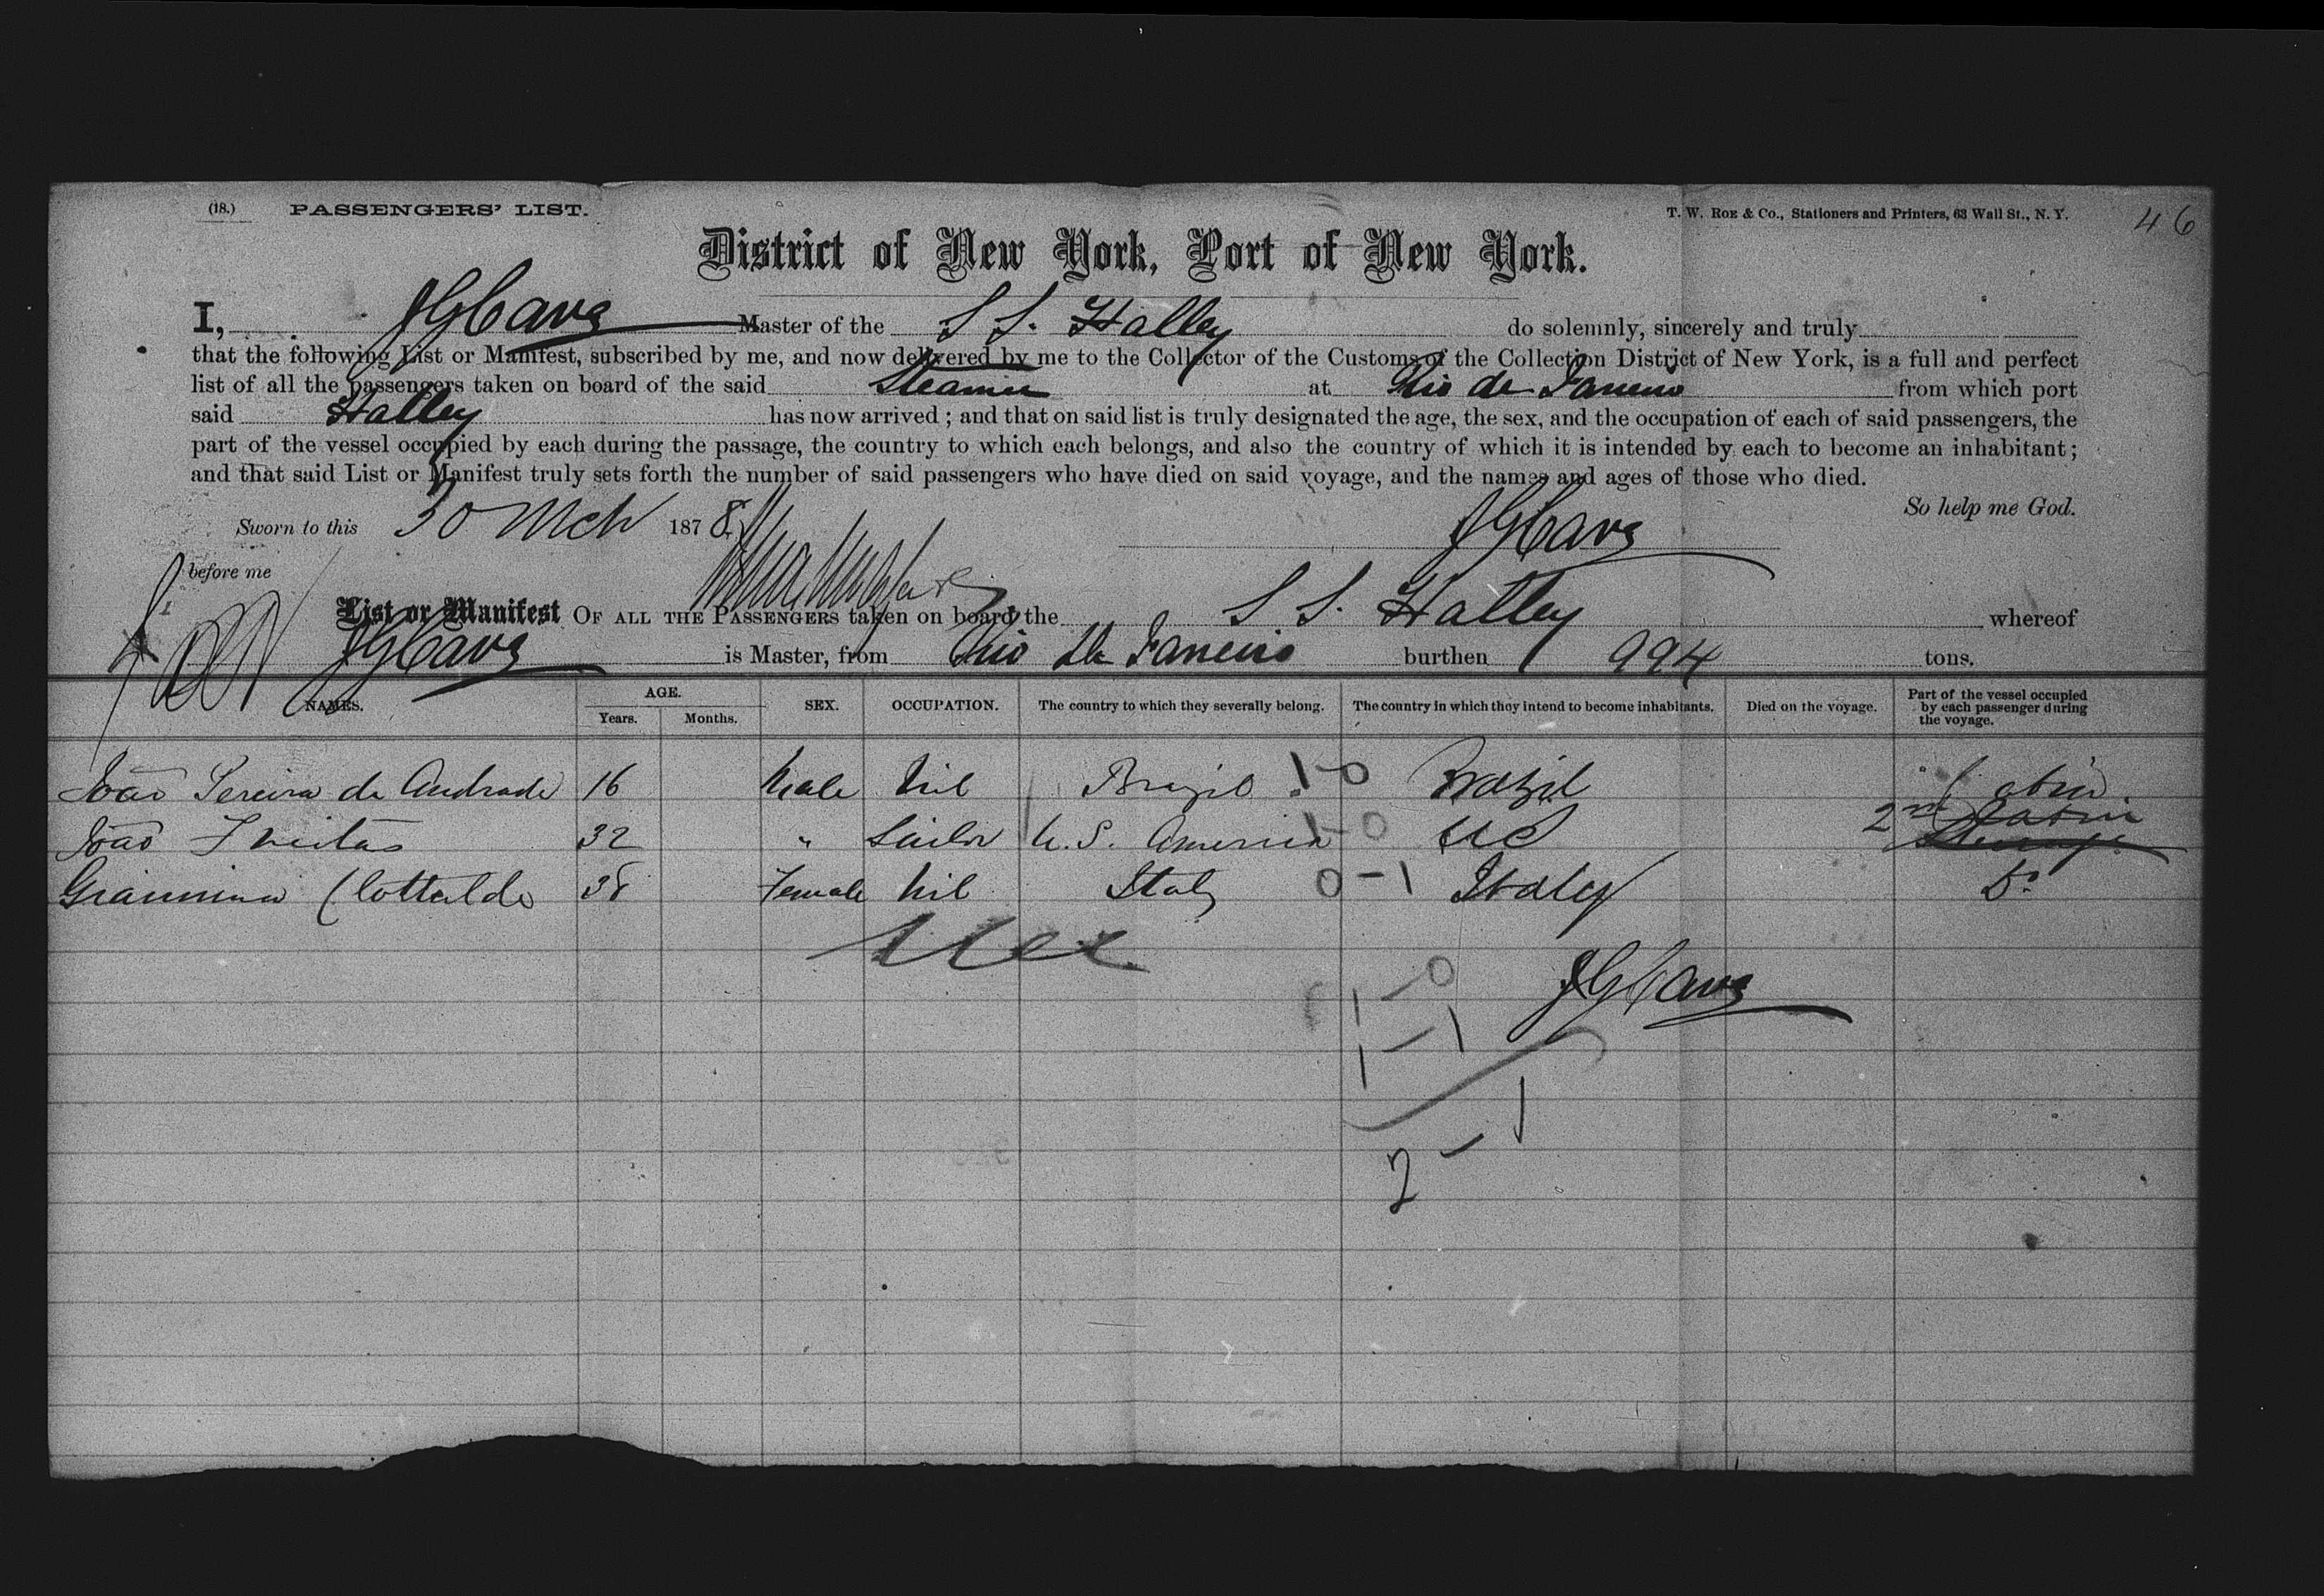 (18.) PASSENGERS' LIST. T. W. ROE & Co., Stationers and Printers, 63 Wall St., N. Y. 46
District of New York, Port of New York.
I, Master of the S S. Halley do solemnly, sincerely and truly
that the following List or Manifest, subscribed by me, and now delivered by me to the Collector of the Customs of the Collection District of New York, is a full and perfect
list of all the passengers taken on board of the said Steamer at Rio de Janeiro from which port
said Halley has now arrived; and that on said list is truly designated the age, the sex, and the occupation of each of said passengers, the
part of the vessel occupied by each during the passage, the country to which each belongs, and also the country of which it is intended by each to become an inhabitant;
and that said List or Manifest truly sets forth the number of said passengers who have died on said voyage, and the names and ages of those who died.
So help me God.
Sworn to this 30 Mch 1878
before me
List or Manifest OF ALL THE PASSENGERS taken on board the S S. Halley whereof
is Master, from Rio de Janeiro burthen 994 tons.
NAMES. AGE. Years. Months. SEX. OCCUPATION. The country to which they severally belong. The country in which they intend to become inhabitants. Died on the voyage. Part of the vessel occupied by each passenger during the voyage.
João Pereira de Andrade 16 Male Nil Brazil 1-0 Brazil Cabin
João Freitas 32 " Sailor U.S. America 1-0 US 2nd Cabin
38 Female Nil Italy 0-1 Italy Do
1-0
1-1
2-1